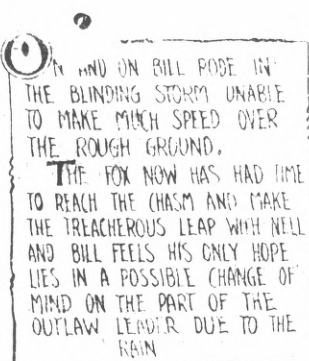 ON AND ON BILL RODE IN
THE BLINDING STORM UNABLE
TO MAKE MUCH SPEED OVER
THE ROUGH GROUND.
THE FOX NOW HAS HAD TIME
TO REACH THE CHASM AND MAKE
THE TREACHEROUS LEAP WITH NELL
AND BILL FEELS HIS ONLY HOPE
LIES IN A POSSIBLE CHANGE OF
MIND ON THE PART OF THE
OUTLAW LEADER DUE TO THE
RAIN